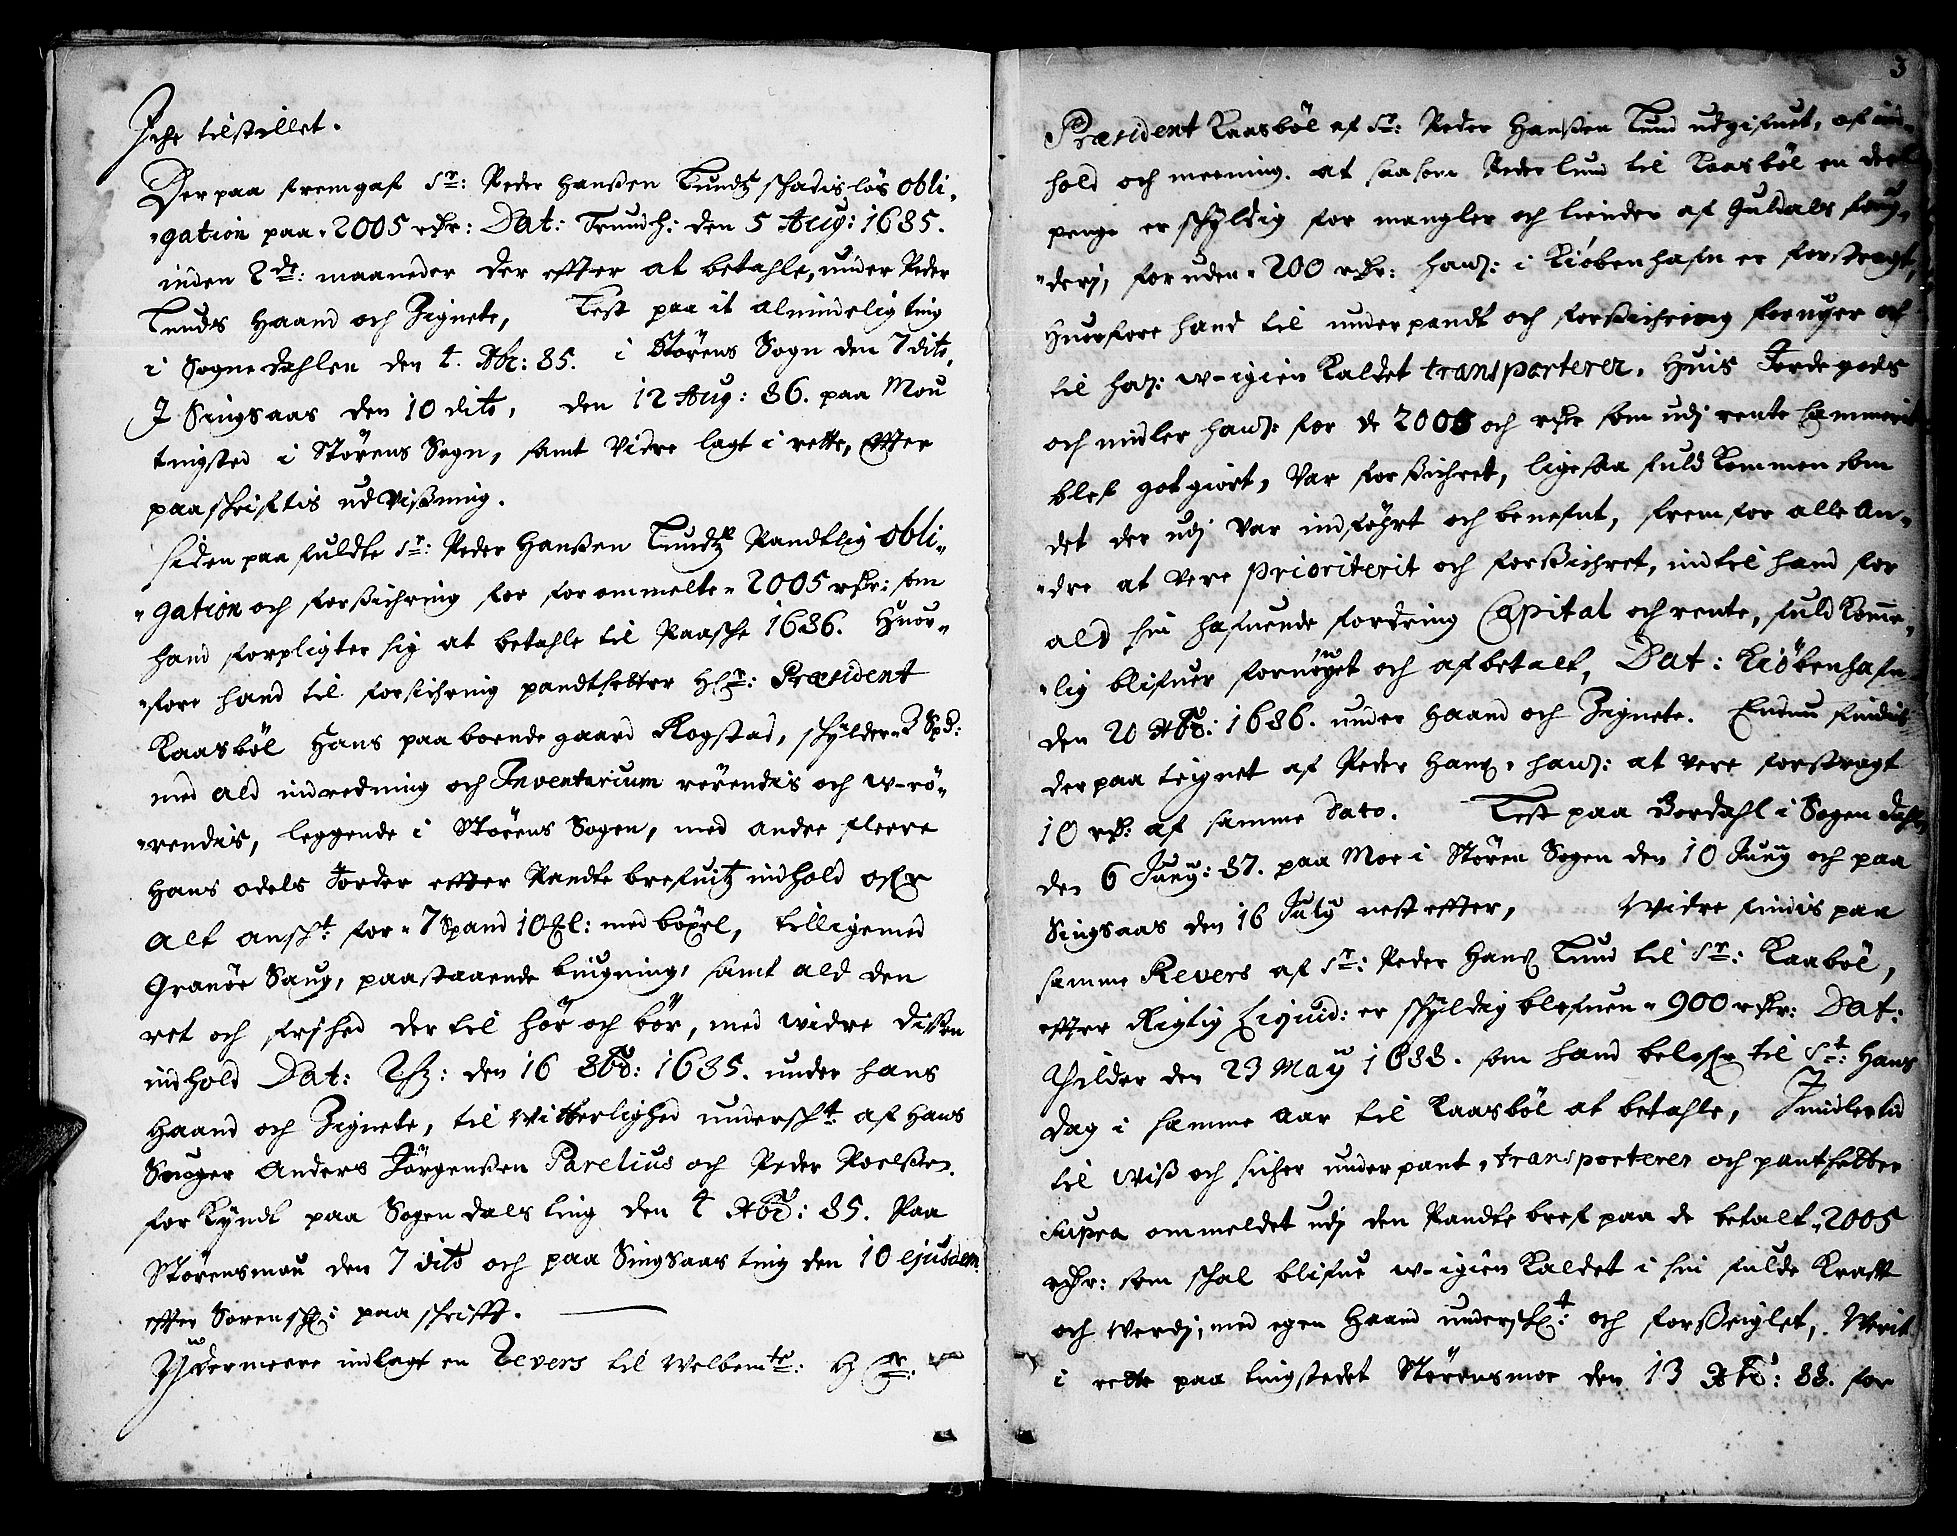 Iche tilstillet.
Der paa fremgaf Sr: Peder Hanßen Lundtz schadisløs obli-
gation paa 2005 rdr: Dat: Trundh: den 5 Aug: 1685.
inden 2de: maaneder der effter at betahle, under Peder
Lunds Haand och Zignete, Lest paa it almindelig ting
i Sognedahlen den 4. Xbr: 85. i Størens Sogn den 7 dito,
I Singsaas den 10 dito, den 12 Aug: 86. paa Mou
tingsted i Størens Sogn, samt Vidre lagt i rette, Effter
paaschriftis udvißning.
Siden paafuldte Sr: Peder Hanßen Lundtz Pandtlig obli-
gation och forßichring for forommelte 2005 rdr: som
hand forpligter sig at betahle til Paasche 1686. Huor-
fore hand til forsichring pandtsetter Hr: Præsident
Kaasbøl Hans paaboende gaard Rogstad, schylder 3 Spd:
med ald indredning och Inventarium rørendis och w-rø-
rendis, leggende i Størens Sogen, med andre fleere
Hans odels Jorder effter Pandte brefuitz indhold ofr
Alt ansch: for 7 Spand 10 Ml: med bøxel, tilligemed
Granøe Saug, paastaaende bygning, samt ald den
ret och frjhed der til hør och bør, med widre dißen
indhold Dat: den 16 8br: 1685. under hans
Haand och Zignete, til Witterlighed undersch: af Hans
Souger Anders Jørgenßen Parelius och Peder Poelßen.
forkyndt paa Sogendals ting den 4 Xbr: 85. Paa
Størensmou den 7 dito och paa Singsaas ting den 10 ejusdem
effter Sorensch: paaschrifft.
Ydermeere indlagt en Revers til Welbemte: Hr:
3
Præsident Kaasbøl af Sr: Peder Hanßen Lund udgifuet, af ind-
hold och meening, at saasom Peder Lund til Kaasbøl en deel
penge er schyldig for mangler och liender af Guldals foug-
derj, foruden 200 rdr: hans: i Kiøbenhafn er forstragt,
Huorfore hand til underpandt och forßichring fornyer och
til hans: w-igien Kaldet transporterer, Huis Jordegods
och midler hans: for de 2005 och rdr som udj rente
blef godgiort, Var forßichret, ligesaa fuldkommen som
det der udj Var indføhrt och benefnt, frem for alle An-
dre at vere prioriterit och forßichret, indtil hand for
ald sin hafuende fordring Capital och rente, fuldkome-
lig blifuer fornøyet och afbetalt, Dat: Kiøbenhafn
den 20 Xbr: 1686. under Haand och Zignete. Endnu findis
derpaa teignet af Peder Hans: hans: at vere forstragt
10 rdr: af samme Dato. Lest paa Bordahl i Sogendahl
den 6 Juny: 87. paa Moe i Støren Sogen den 10 Juny och paa
Singsaas den 16 July nest effter, Widre findis paa
samme Revers af Sr: Peder Hans Lund til Sr: Kaabøl,
effter Rigtig Liqvid: er schyldig blefuen 900 rdr: Dat:
den 23 May 1688. som hand belofr til St: Hans
Dag i samme Aar til Kaasbøl at betahle, Imidlertid
til Wiß och sicher underpant, transporterer och pantsetter
supra ommeldet udj den Pandtebref paa de betalt 2005
rdr: som schal blifue w-igien Kaldet i sin fulde Krafft
och Werdj, med egen Haand undersch: och forßeiglet, Werit
i rette paa tingstedet Størensmoe den 13 Xbr: 88. for